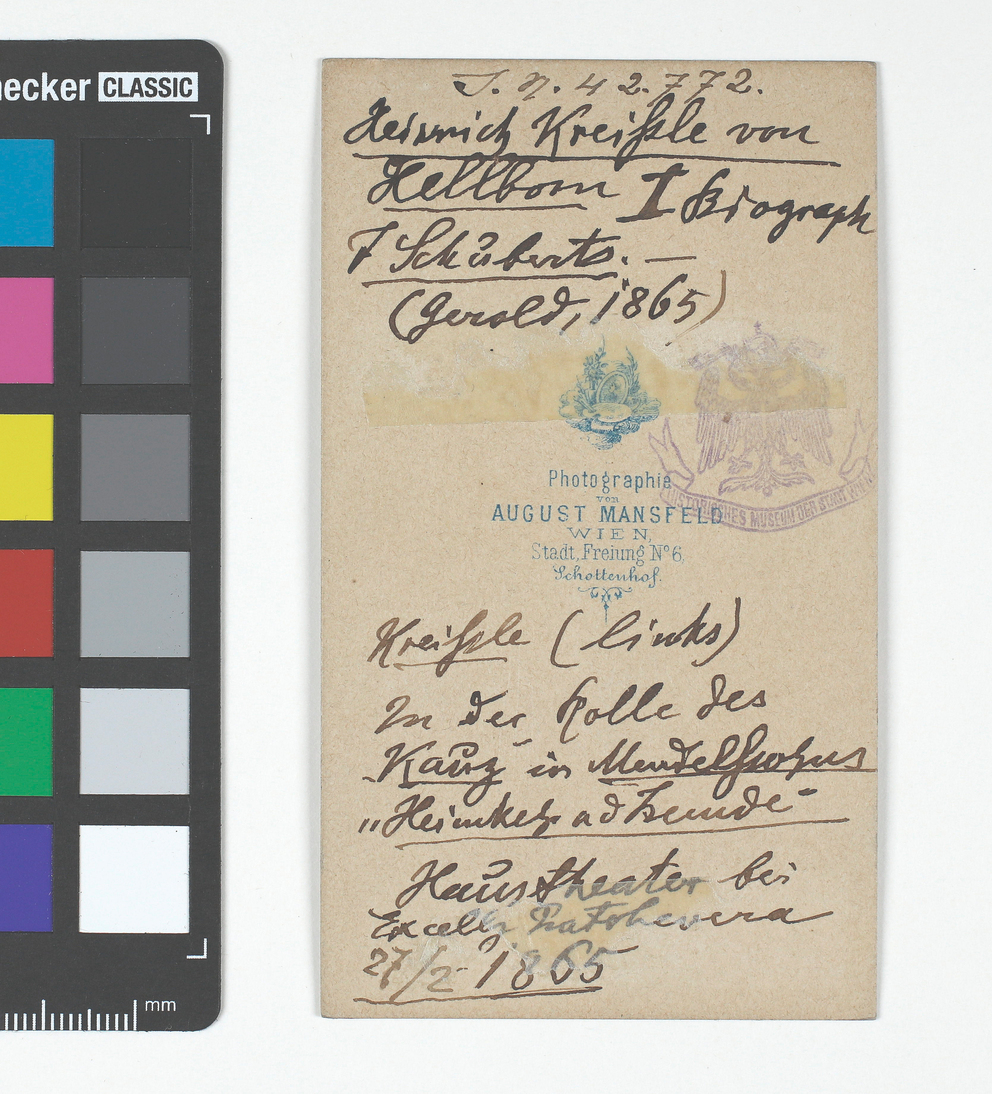 ecker CLASSIC
J. N. 42.772.
Heinrich Kreißle von
Hellborn I Biograph
F Schuberts. —
(Gerold, 1865)
Photographie
von
AUGUST MANSFELD
WIEN,
Stadt, Freiung Nº 6,
Schottenhof.
HISTORISCHES MUSEUM DER STADT WIEN
Kreißle (links)
In der Rolle des
„Kauz“ in Mendelssohns
„Heimkehr a d Fremde“
Haustheater bei
Excell. Pratobevera
27/2 1865
mm